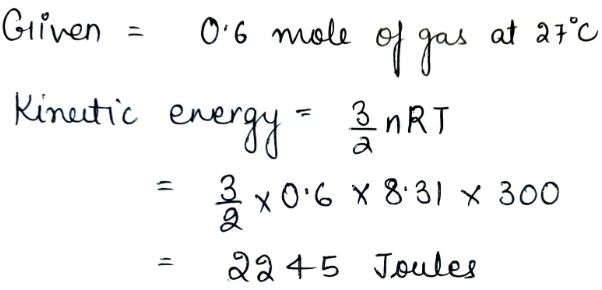 Given = 0.6 mole of gas at 27°C
Kinetic energy = 3/2 nRT
= 3/2 × 0.6 × 8.31 × 300
= 2245 Joules